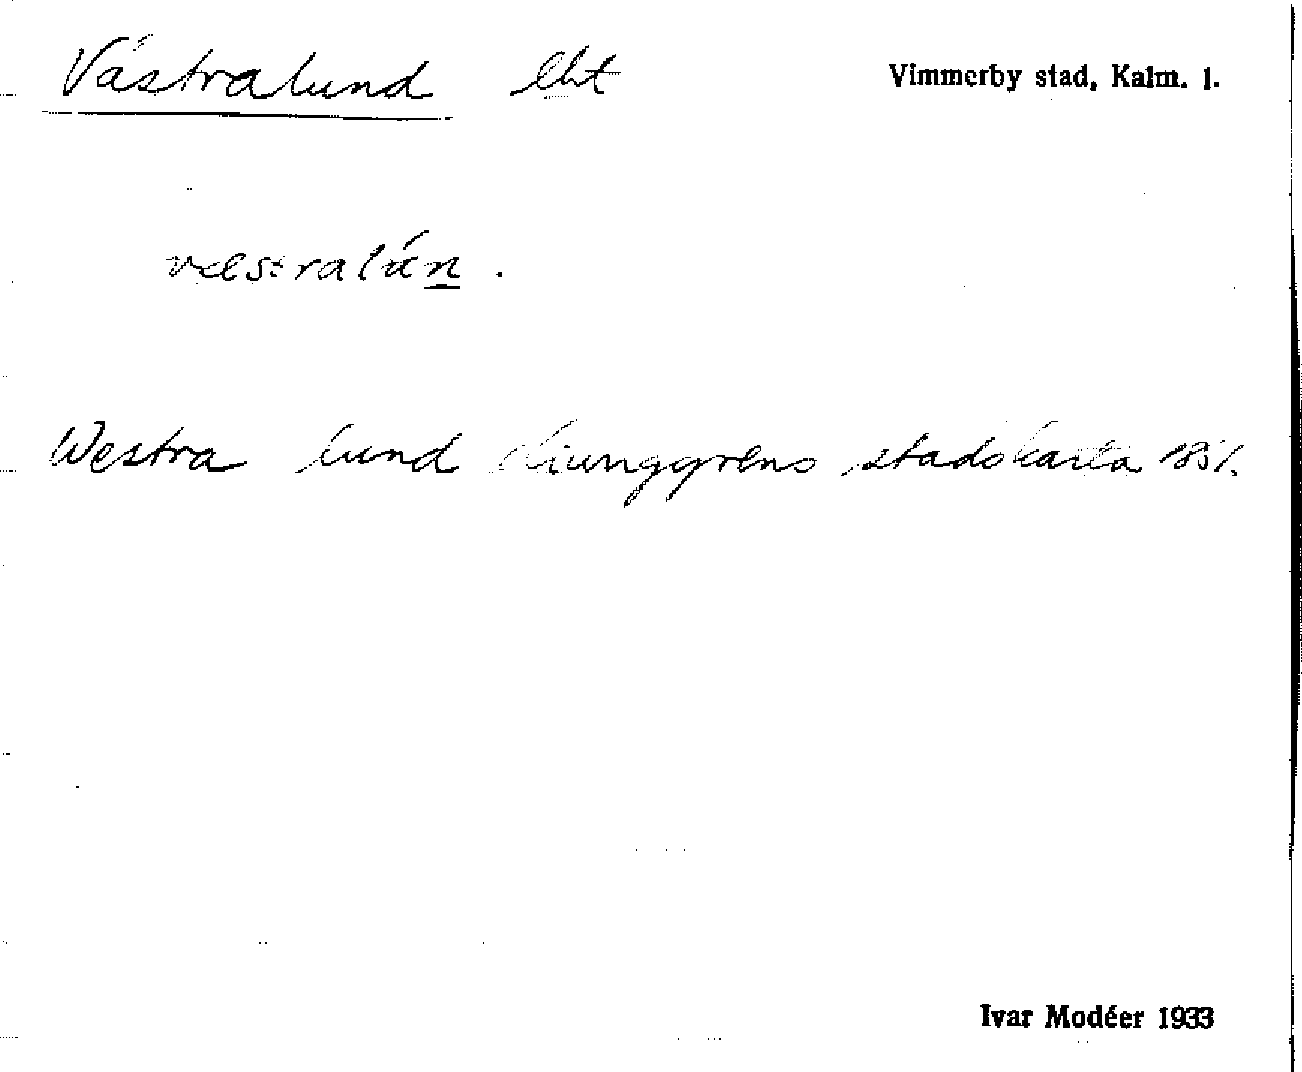 Västralund lht
Vimmerby stad, Kalm. l.
væstralún.
Westra lund Liunggrens stadskarta 185/.
Ivar Modéer 1933